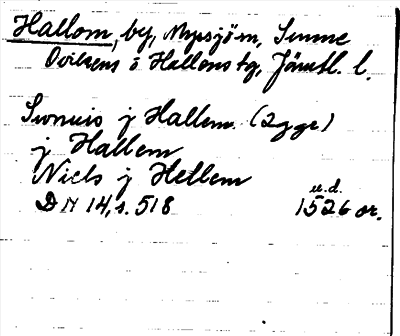 Hallom, by, Myssjö sn, Sunne
Ovikens o Hallens tg, Jämtl. l.
Swnuis j Hallem (2 ggr)
j Hallem
Niels j Hellem
u.d.
DN 14, s. 518 1526 or.